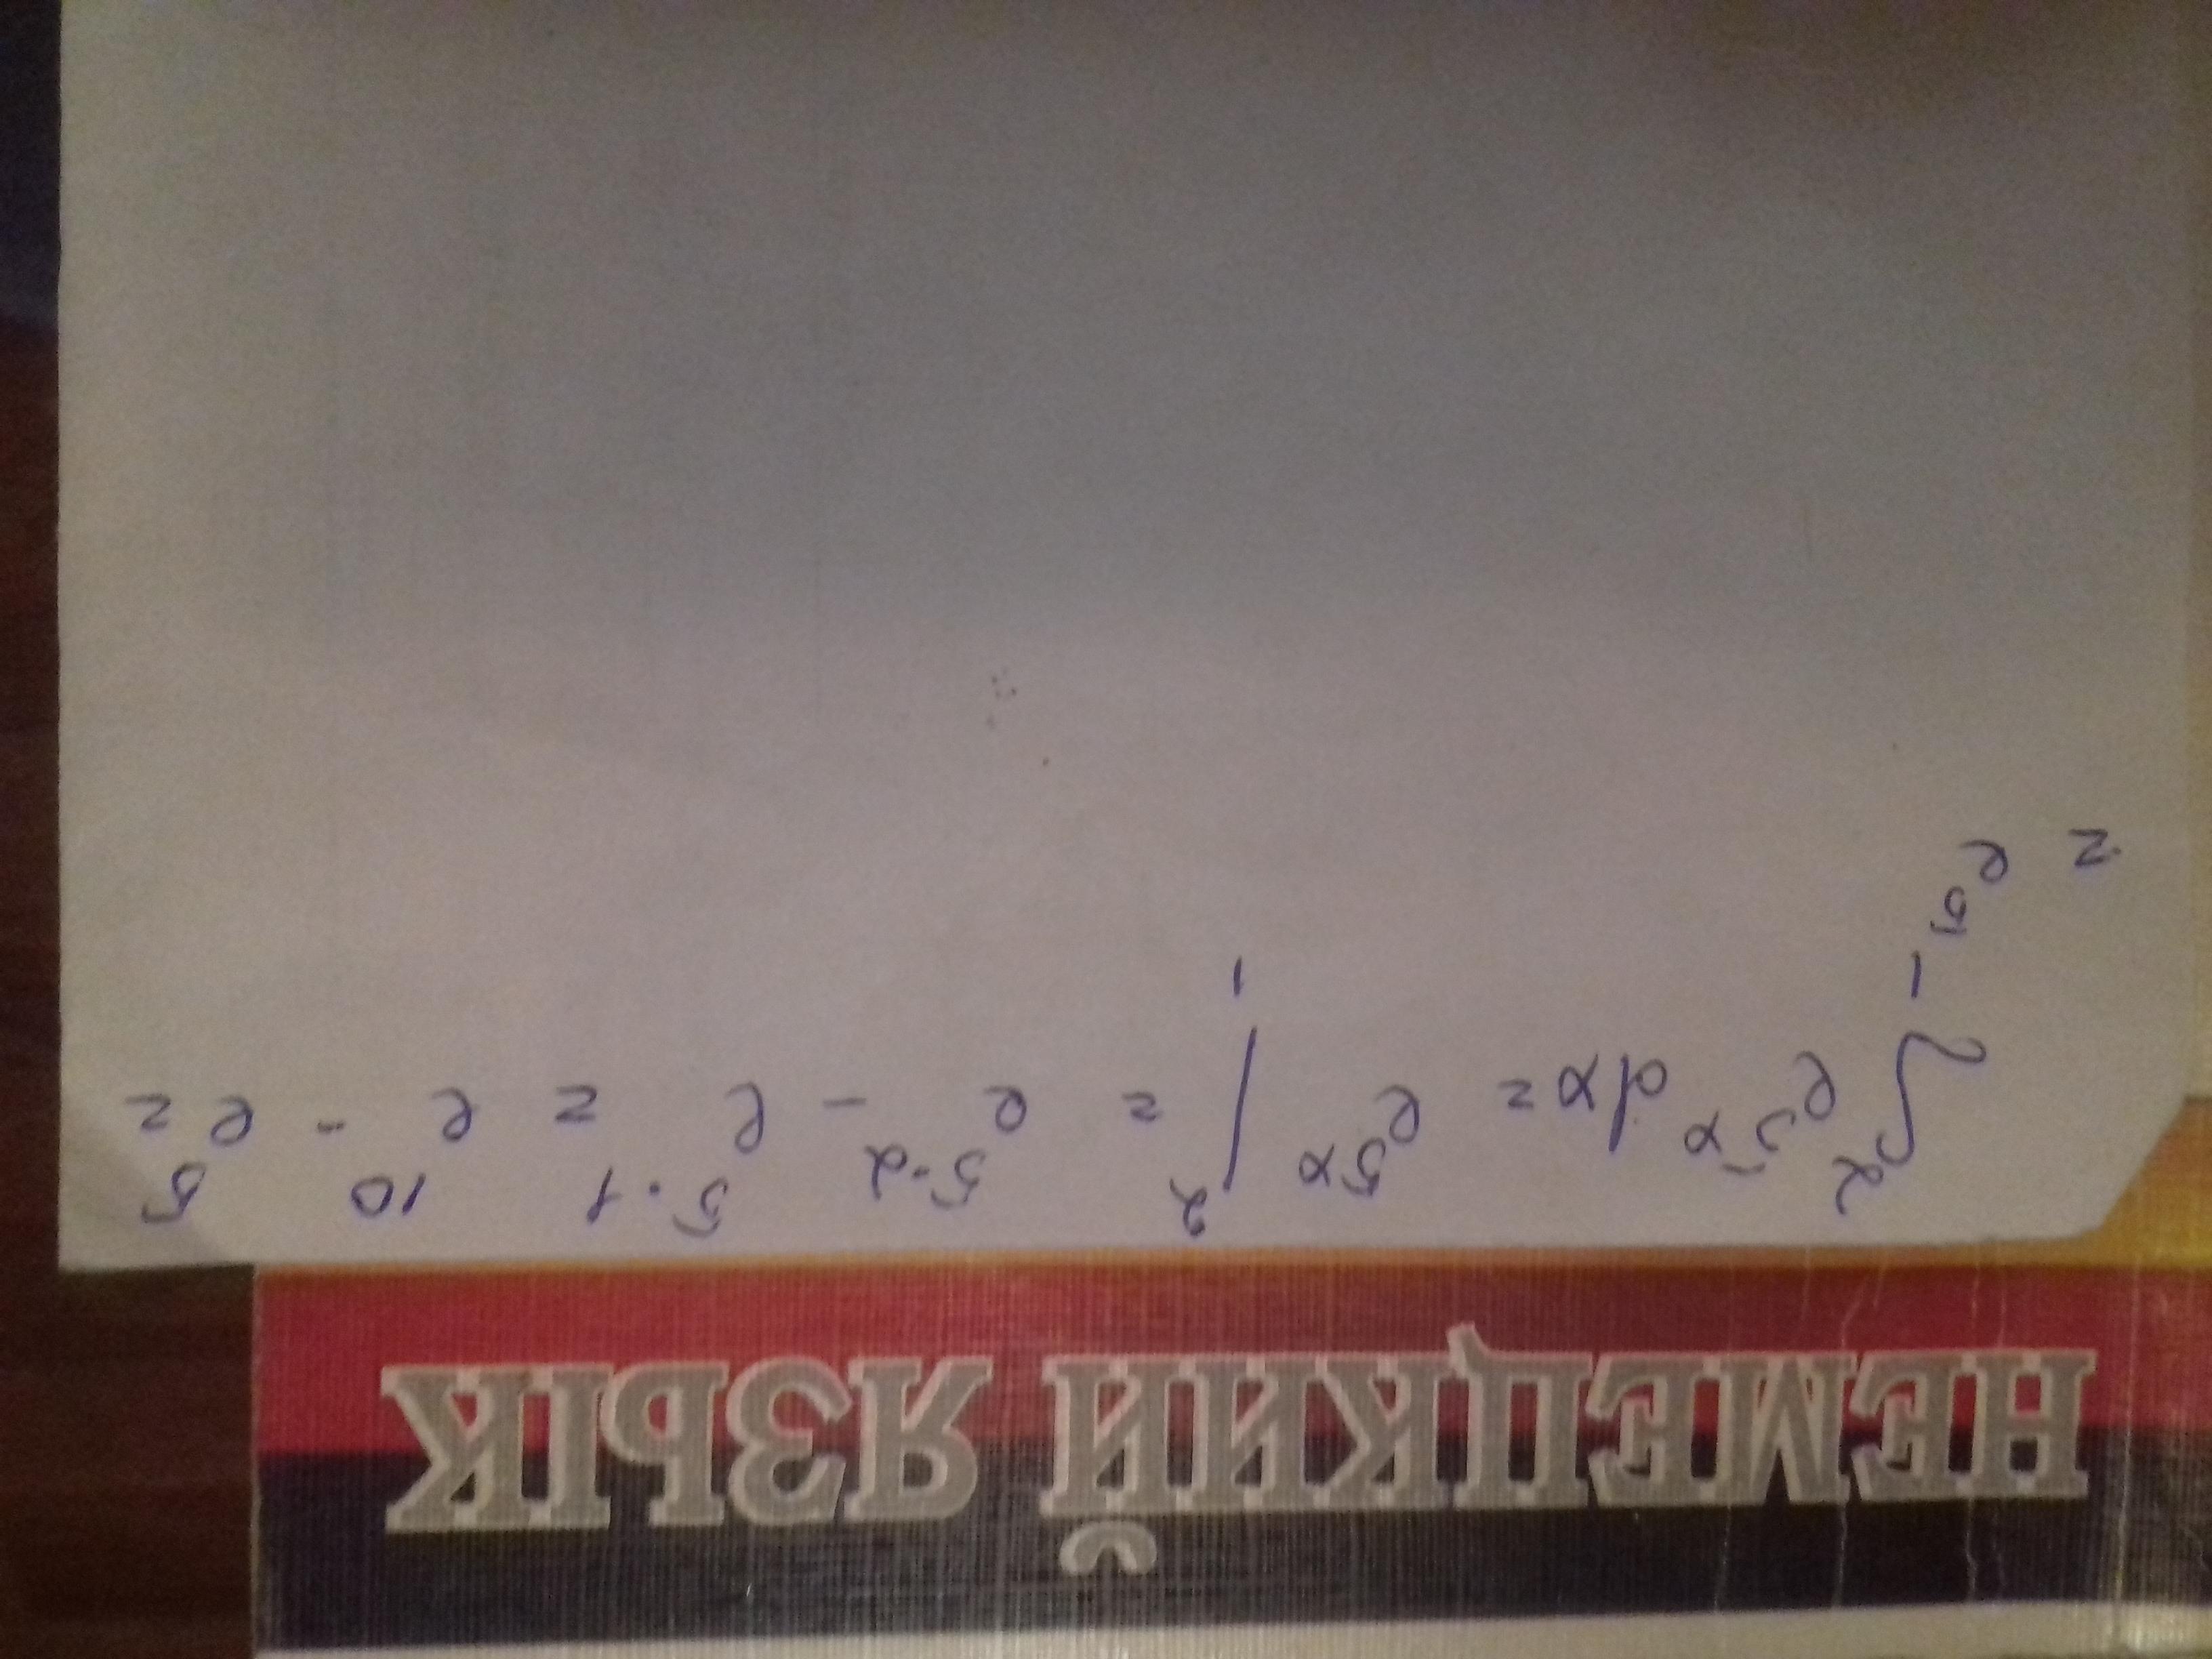 НЕМЕЦКИЙ ЯЗЫК
∫₁² e^{5x} dx = e^{5x} |₁² = e^{5·2} - e^{5·1} = e^{10} - e^5 =
= e^5